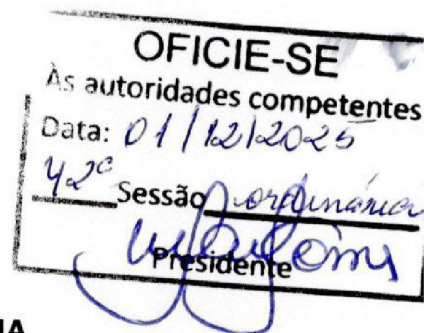 OFICIE-SE
Às autoridades competentes
Data: 01/12/2025
42ª Sessão ordinária
Presidente
IA